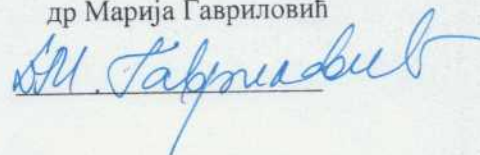 др Марија Гавриловић
М. Гавриловић